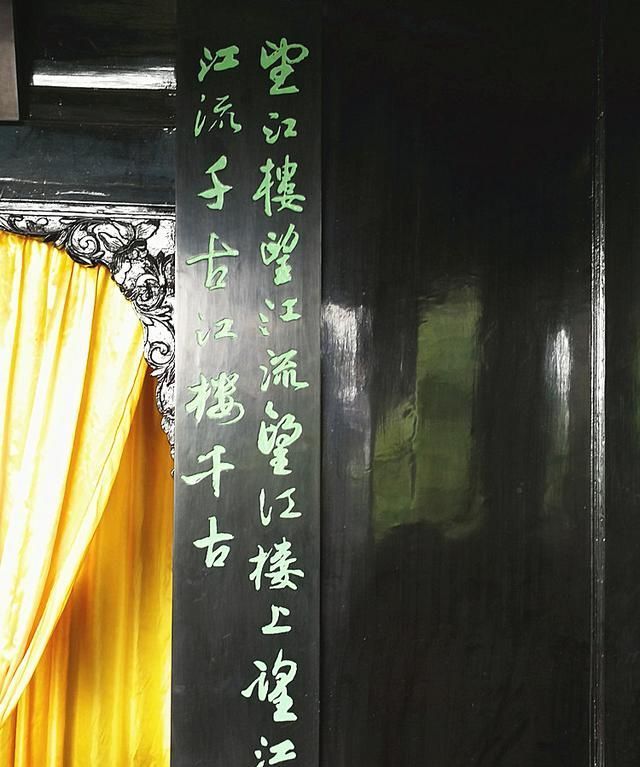 望江楼望江流望江楼上望江
江流千古江楼千古